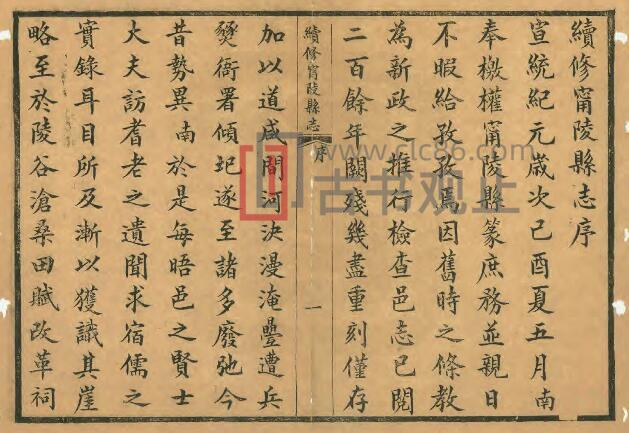 續修甯陵縣志序
宣統紀元歲次己酉夏五月南
奉檄權甯陵縣篆庶務並親日
不暇給孜孜焉因舊時之條教
為新政之推行檢查邑志已閱
二百餘年闕殘幾盡重刻僅存
續修甯陵縣志
序
一
加以道咸間河決漫淹疊遭兵
燹衙署傾圮遂至諸多廢弛今
昔勢異南於是每晤邑之賢士
大夫訪耆老之遺聞求宿儒之
實錄耳目所及漸以獲識其崖
略至於陵谷滄桑田賦改革祠
www.clc86.com
古书观止